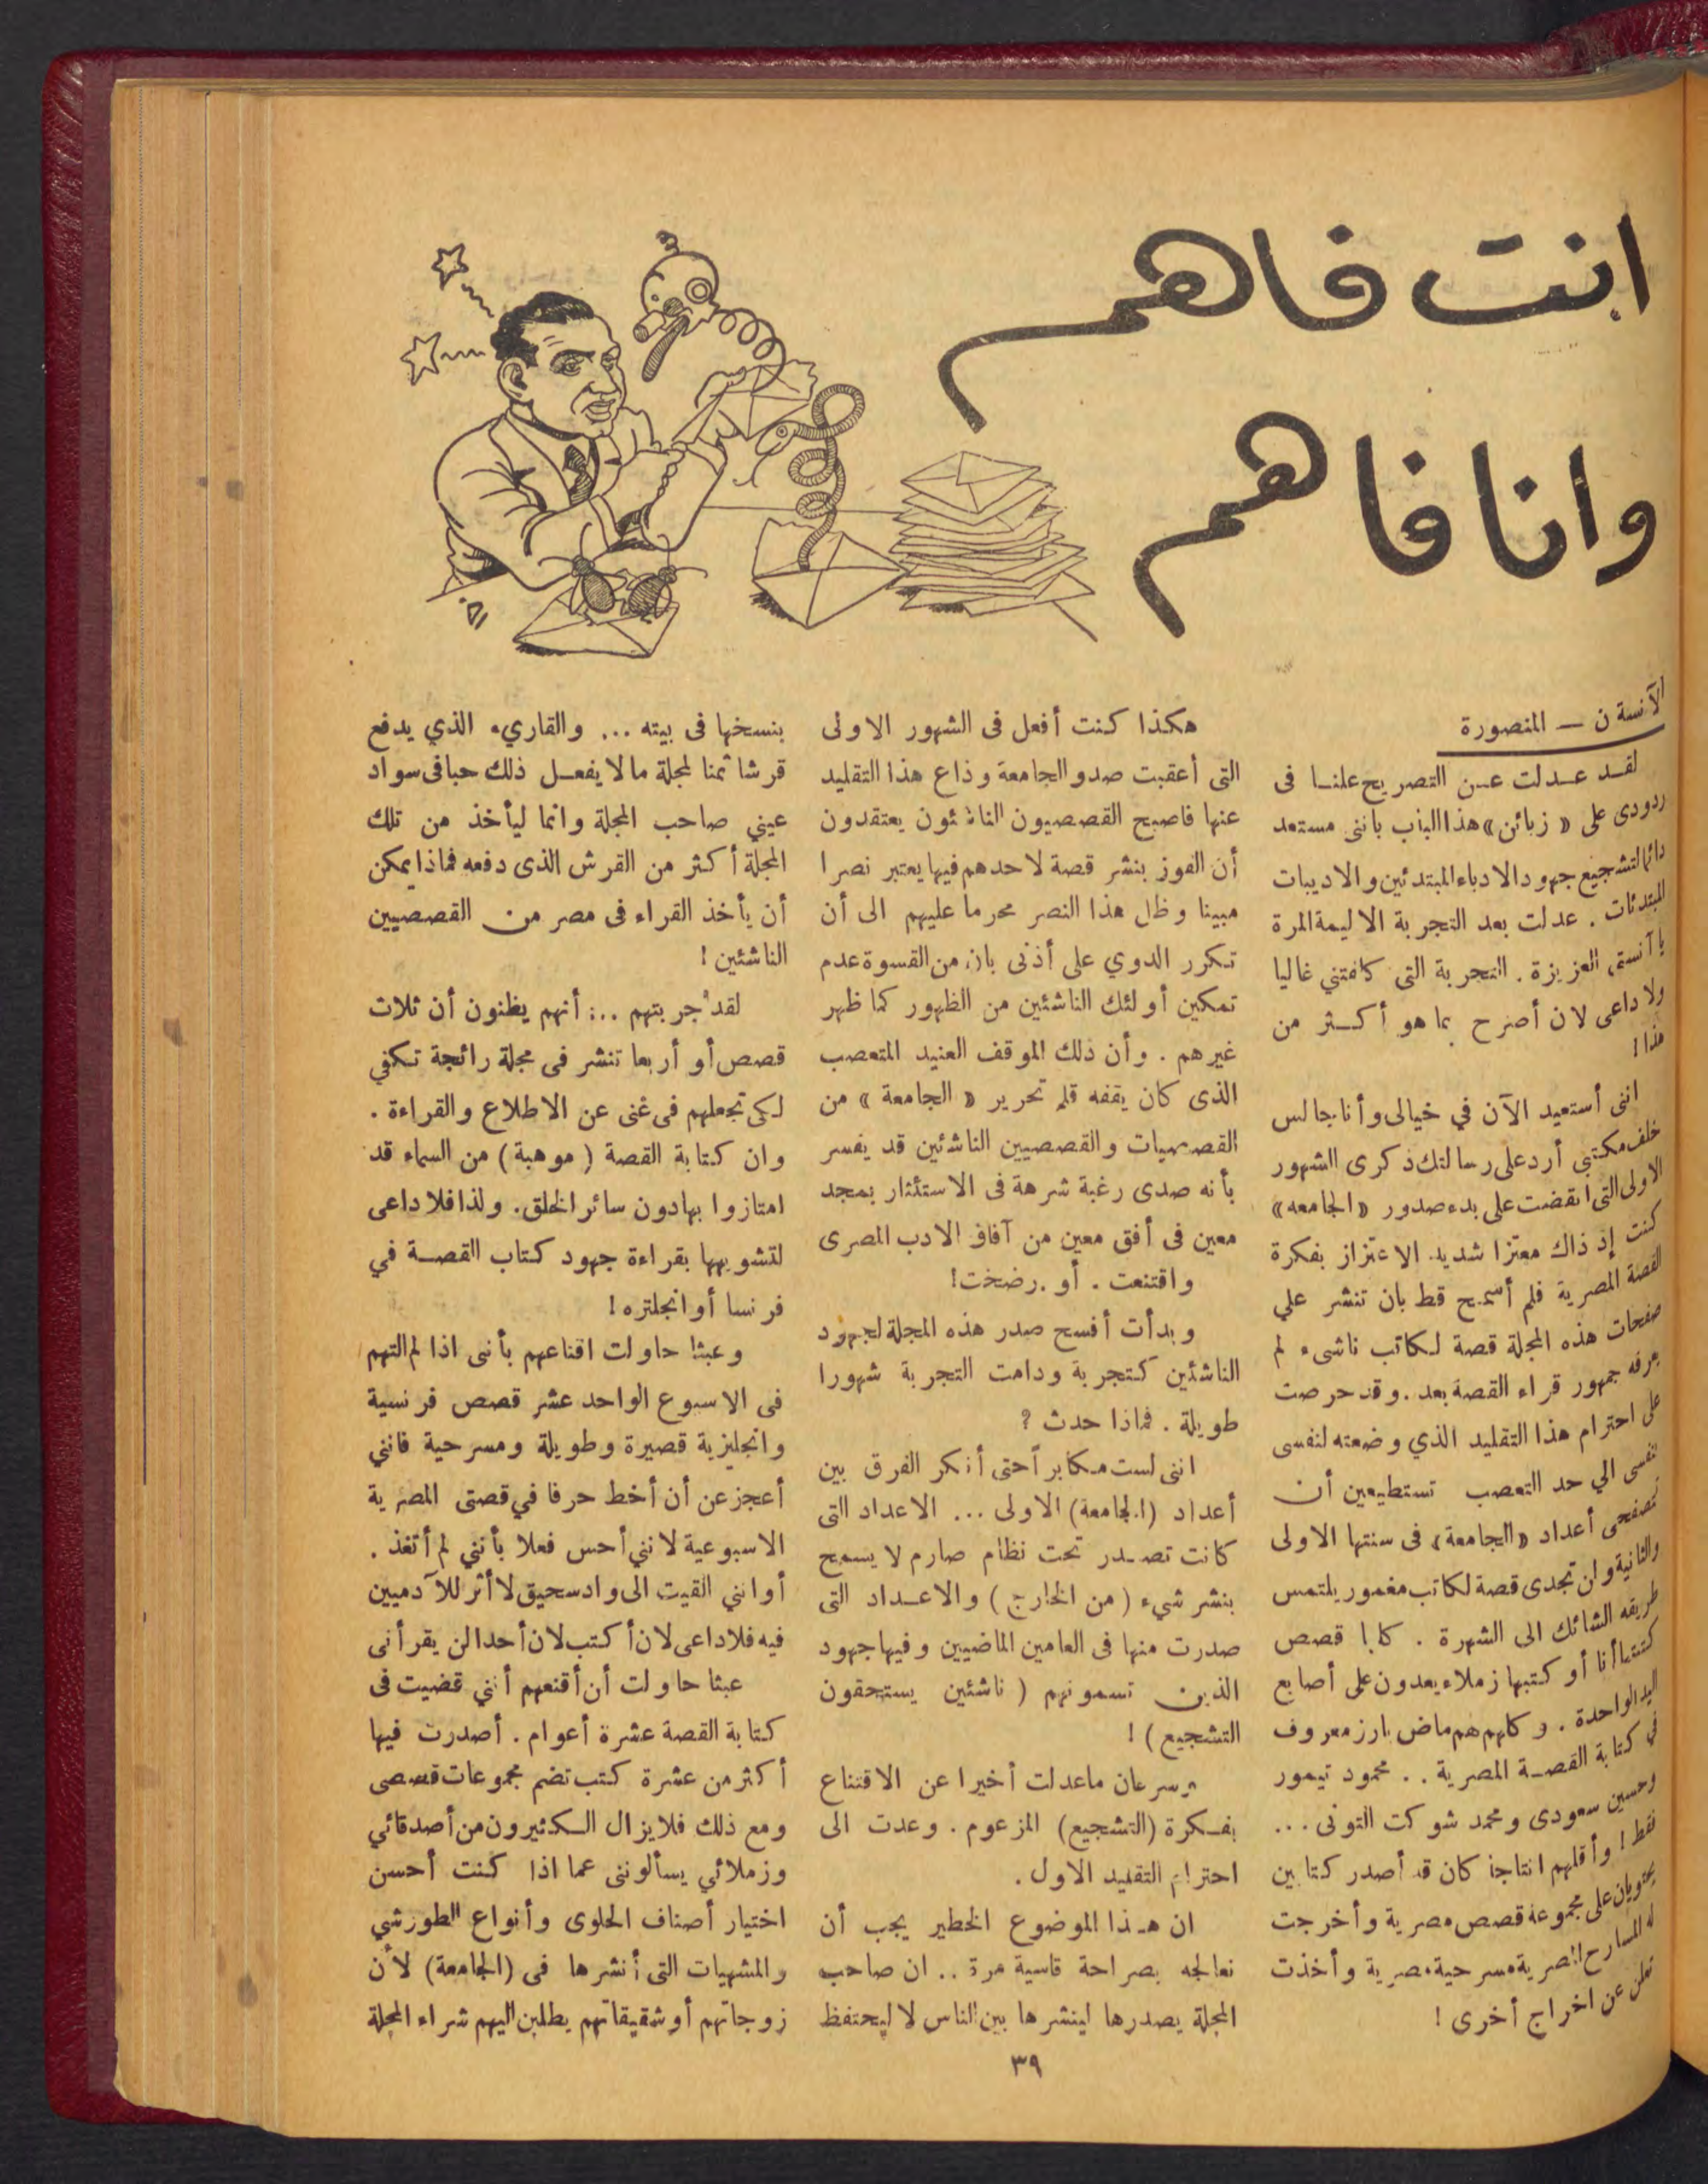 انت فاهم
وانا فاهم
الآنسة ن — المنصورة
لقد عدلت عن التصريح علنا فى
ردودى على « زبائن » هذا الباب بأننى مستعد
دائما لتشجيع جهود الادباء المبتدئين والاديبات
المبتدئات . عدلت بعد التجربة الاليمة المرة
يا آنستى العزيزة . التجربة التى كلفتني غاليا
ولا داعى لان أصرح بما هو أكثر من
هذا !
اننى أستعيد الآن في خيالى وأنا جالس
خلف مكتبي أرد على رسالتك ذكرى الشهور
الاولى التى انقضت على بدء صدور « الجامعه »
كنت إذ ذاك معتزا شديد الاعتزاز بفكرة
القصة المصرية فلم أسمح قط بان تنشر علي
صفحات هذه المجلة قصة لكاتب ناشىء لم
يعرفه جمهور قراء القصة بعد . وقد حرصت
على احترام هذا التقليد الذي وضعته لنفسى
بنفسى الي حد التعصب تستطيعين أن
تتصفحى أعداد « الجامعة » فى سنتها الاولى
والثانية ولن تجدى قصة لكاتب مغمور يلتمس
طريقه الشائك الى الشهرة . كلها قصص
كتبتها أنا أو كتبها زملاء يعدون على أصابع
اليد الواحدة . وكلهم هم ماض بارز معروف
في كتابة القصة المصرية . . محمود تيمور
وحسين سعودى ومحمد شوكت التونى ...
فقط ! وأقلهم انتاجا كان قد أصدر كتابين
يحتويان على مجموعة قصص مصرية وأخرجت
له المسارح المصرية مسرحية مصرية وأخذت
تعلن عن اخراج أخرى !
هكذا كنت أفعل فى الشهور الاولى
التى أعقبت صدور الجامعة وذاع هذا التقليد
عنها فاصبح القصصيون الناشئون يعتقدون
أن الفوز بنشر قصة لاحدهم فيها يعتبر نصرا
مبينا وظل هذا النصر محرما عليهم الى أن
تكرر الدوي على أذنى بان من القسوة عدم
تمكين أولئك الناشئين من الظهور كما ظهر
غيرهم . وأن ذلك الموقف العنيد المتعصب
الذى كان يقفه قلم تحرير « الجامعة » من
القصصيات والقصصيين الناشئين قد يفسر
بأنه صدى رغبة شرهة فى الاستئثار بمجد
معين فى أفق معين من آفاق الادب المصرى
واقتنعت . أو . رضخت !
وبدأت أفسح صدر هذه المجلة لجهود
الناشئين كتجربة ودامت التجربة شهورا
طويلة . فماذا حدث ؟
اننى لست مكابراً حتى أنكر الفرق بين
أعداد (الجامعة) الاولى ... الاعداد التى
كانت تصدر تحت نظام صارم لا يسمح
بنشر شيء ( من الخارج ) والاعداد التى
صدرت منها فى العامين الماضيين وفيها جهود
الذين تسمونهم ( ناشئين يستحقون
التشجيع ) !
وسرعان ما عدلت أخيرا عن الاقتناع
بفكرة (التشجيع) المزعوم . وعدت الى
احترام التقليد الاول .
ان هذا الموضوع الخطير يجب أن
نعالجه بصراحة قاسية مرة .. ان صاحب
المجلة يصدرها لينشرها بين الناس لا ليحتفظ
بنسخها فى بيته ... والقاريء الذي يدفع
قرشا ثمنا لمجلة ما لا يفعل ذلك حبا فى سواد
عيني صاحب المجلة وانما ليأخذ من تلك
المجلة أكثر من القرش الذى دفعه فماذا يمكن
أن يأخذ القراء فى مصر من القصصيين
الناشئين !
لقد جربتهم ... أنهم يظنون أن ثلاث
قصص أو أربعا تنشر فى مجلة رائجة تكفي
لكى تجعلهم فى غنى عن الاطلاع والقراءة .
وان كتابة القصة ( موهبة ) من السماء قد
امتازوا بها دون سائر الخلق . ولذا فلا داعى
لتشويهها بقراءة جهود كتاب القصة في
فرنسا أو انجلتره !
وعبثا حاولت اقناعهم بأننى اذا لم التهم
فى الاسبوع الواحد عشر قصص فرنسية
وانجليزية قصيرة وطويلة ومسرحية فانني
أعجز عن أن أخط حرفا في قصتى المصرية
الاسبوعية لانني أحس فعلا بأنني لم أتغذ .
أو انني القيت الى واد سحيق لا أثر للآدميين
فيه فلا داعى لان أكتب لان أحدا لن يقرأنى
عبثا حاولت أن أقنعهم أنني قضيت فى
كتابة القصة عشرة أعوام . أصدرت فيها
أكثر من عشرة كتب تضم مجموعات قصصى
ومع ذلك فلا يزال الكثيرون من أصدقائي
وزملائي يسألوننى عما اذا كنت أحسن
اختيار أصناف الحلوى وأنواع الطورشي
والمشهيات التى أنشرها فى (الجامعة) لأن
زوجاتهم أو شقيقاتهم يطلبن اليهم شراء المجلة
٣٩